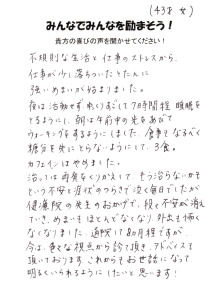 (43才 女)
みんなでみんなを励まそう！
貴方の喜びの声を聞かせてください！
不規則な生活と仕事のストレスから、
仕事が少し落ちついたとたんに
強いめまいが始まりました。
夜は活動せず、ゆっくりすごして7時間程睡眠を
とるようにし、朝は午前中の光をあびて
ウォーキングをするようにしました。食事もなるべく
糖分を先にとらないようにして、3食。
カフェインはやめました。
治しては再発をくりかえして、もう治らないかも
という不安と症状のつらさで泣く毎日でしたが
健康院の先生のおかげで、段々不安が消え
ていき、めまいもほとんどなくなり、外出も怖く
なくなりました。通院して8カ月程ですが、
今は、色々な視点から診て頂き、アドバイスも
頂いております。これからもお世話になって
明るくいられるようにしたいと思います！